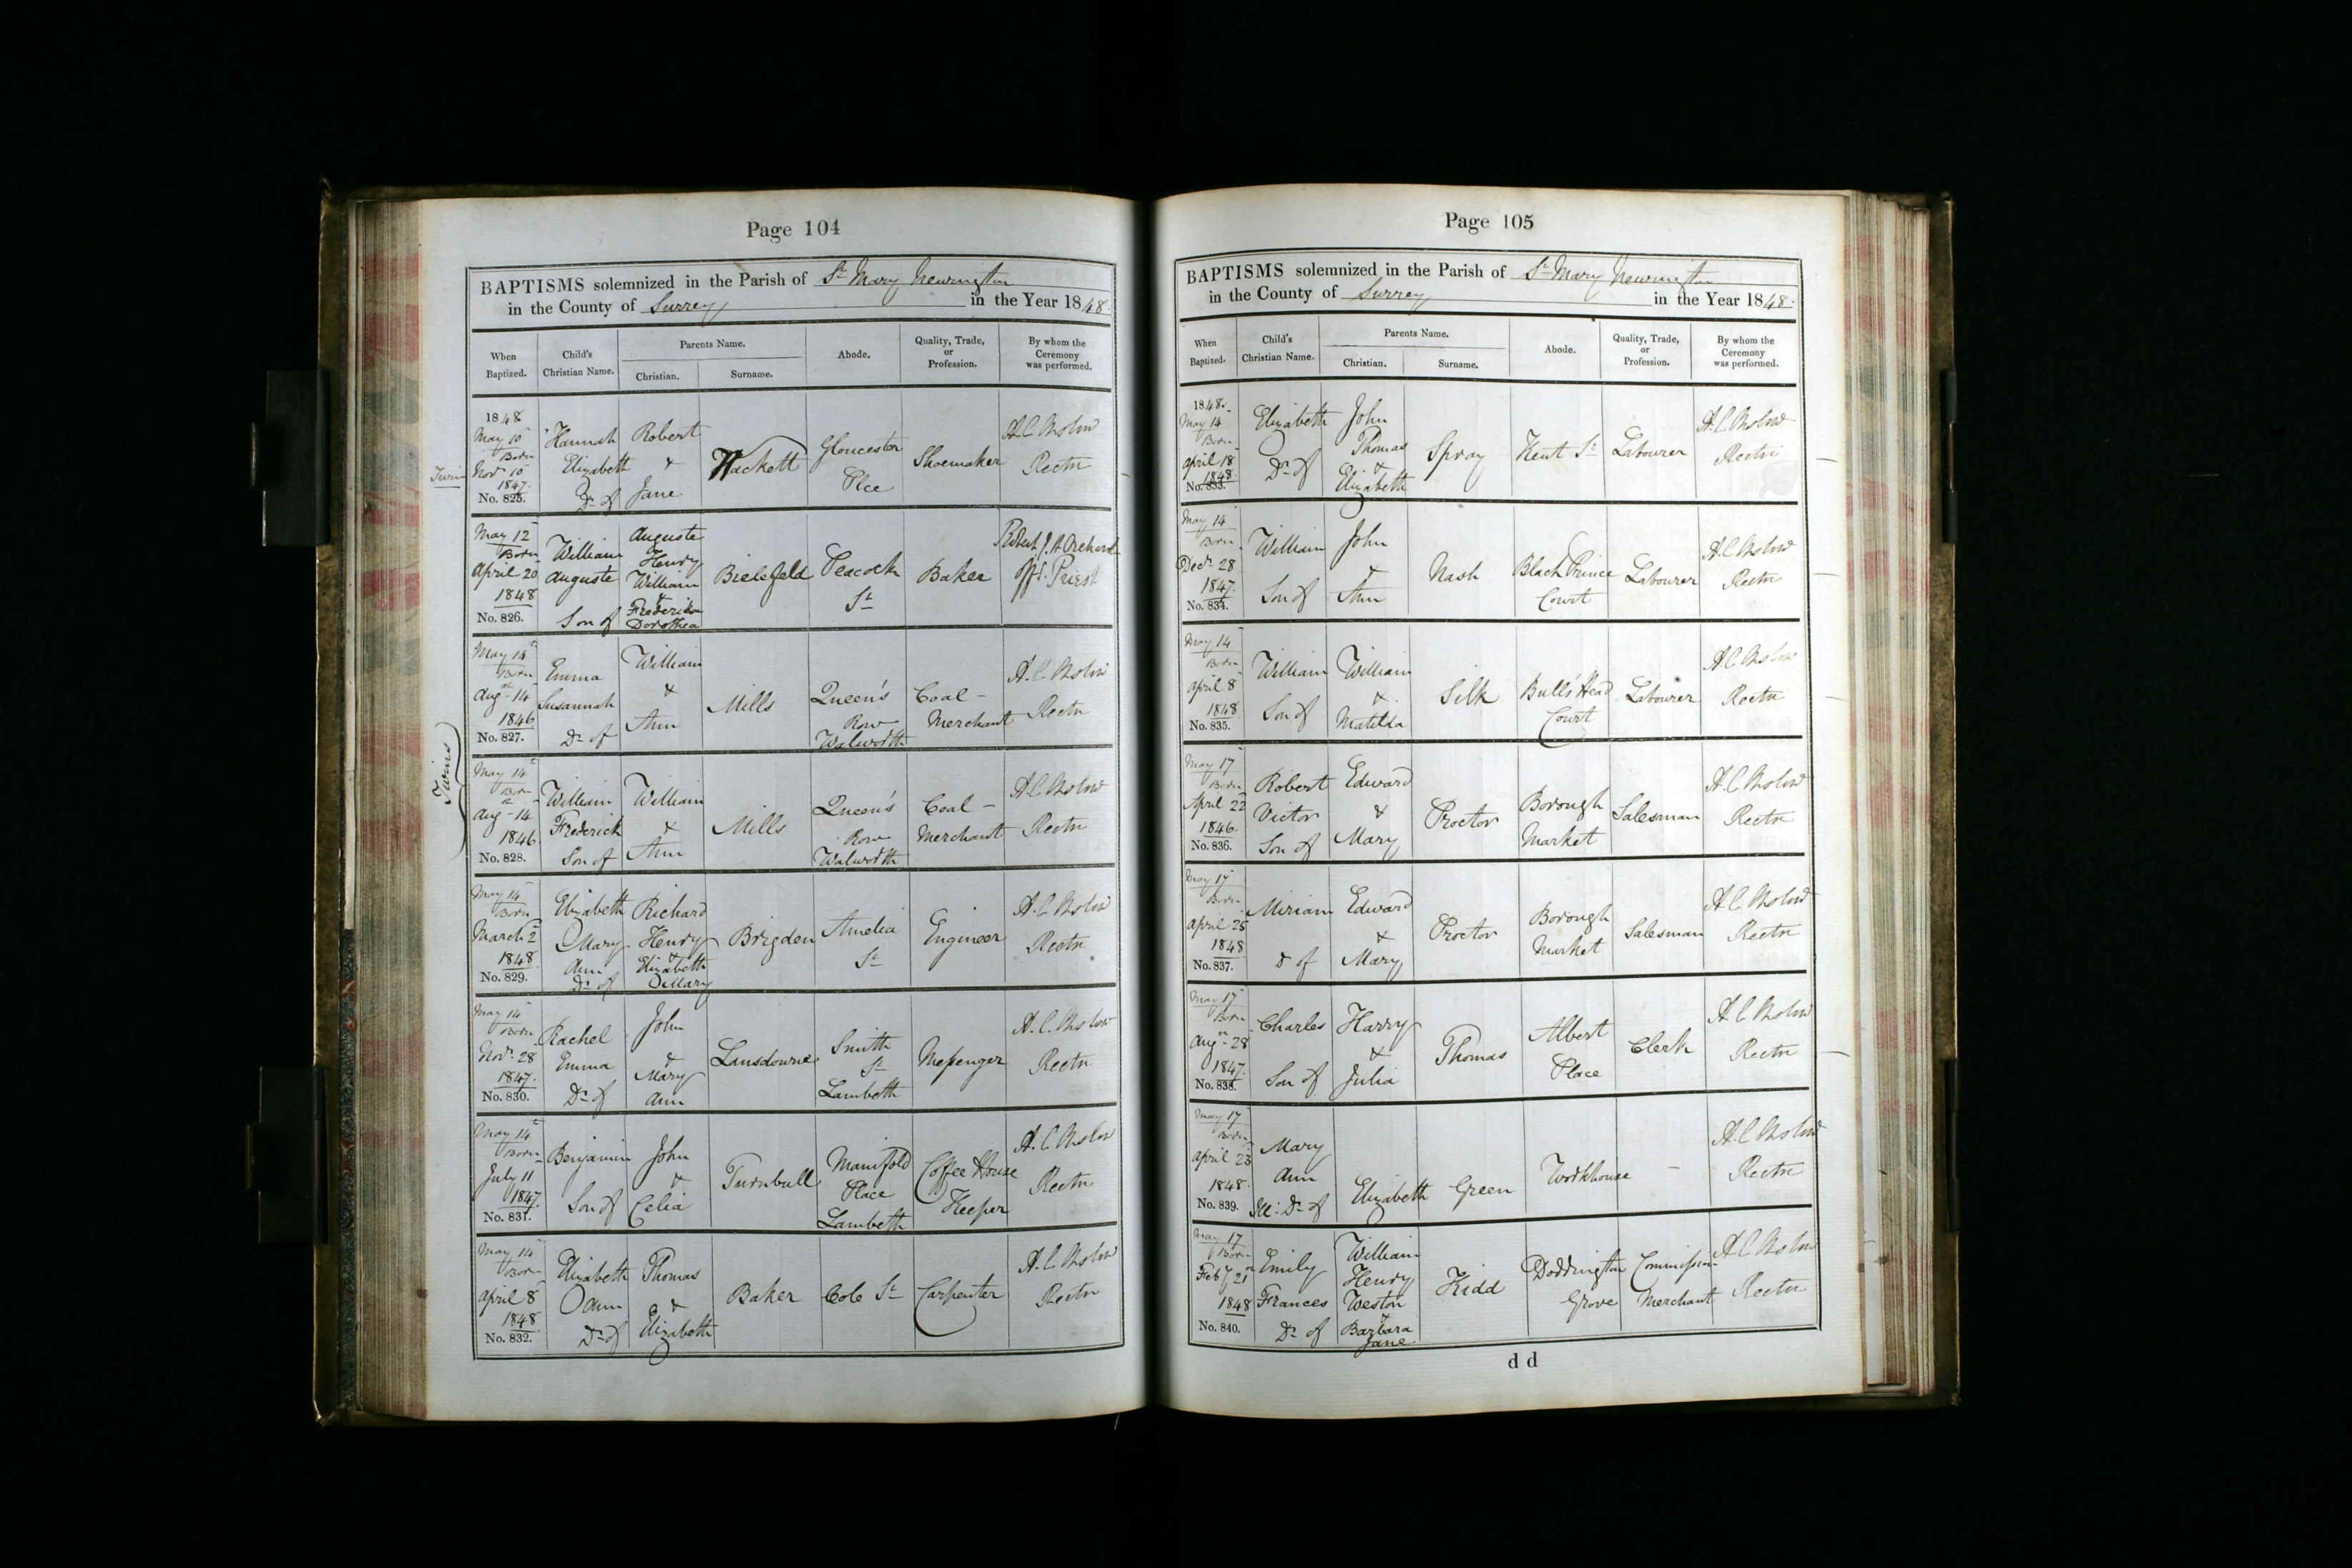 Page 104
BAPTISMS solemnized in the Parish of St Mary Newington
in the County of Surrey in the Year 1848.
When Baptized.
Child's Christian Name.
Parents Name.
Christian.
Surname.
Abode.
Quality, Trade, or Profession.
By whom the Ceremony was performed.
Twin
1848
May 10
Born
Novr 10
1847.
No. 825.
Hannah
Elizabeth
Dr of
Robert
&
Jane
Hackett
Gloucester
Plce
Shoemaker
Rector
May 12
Born
April 20
1848
No. 826.
William
Auguste
Son of
Auguste
Henry
William
&
Frederica
Dorothea
Bielefeld
Peacock
St
Baker
Robert J. A. Orchard
Offg. Priest
Twins
May 14
Born
Aug 14
1846
No. 827.
Emma
Susannah
Dr of
William
&
Ann
Mills
Queen's
Row
Walworth
Coal -
Merchant
Rector
May 14
Born
Aug 14
1846
No. 828.
William
Frederick
Son of
William
&
Ann
Mills
Queen's
Row
Walworth
Coal -
Merchant
Rector
May 14
Born
March 2
1848
No. 829.
Elizabeth
Mary
Ann
Dr of
Richard
Henry
&
Elizabeth
Mary
Brigden
Amelia
St
Engineer
Rector
May 14
Born
Novr 28
1847.
No. 830.
Rachel
Emma
Dr of
John
&
Mary
Ann
Lansdowne
Smith
St
Lambeth
Messenger
Rector
May 14
Born
July 11
1847
No. 831.
Benjamin
Son of
John
&
Celia
Turnbull
Manifold
Place
Lambeth
Coffee House
Keeper
Rector
May 14
Born
April 8
1848
No. 832.
Elizabeth
Ann
Dr of
Thomas
&
Elizabeth
Baker
Cole St
Carpenter
Rector
Page 105
BAPTISMS solemnized in the Parish of St Mary Newington
in the County of Surrey in the Year 1848.
When Baptized.
Child's Christian Name.
Parents Name.
Christian.
Surname.
Abode.
Quality, Trade, or Profession.
By whom the Ceremony was performed.
1848.
May 14
Born
April 18
1848
No. 833.
Elizabeth
Dr of
John
Thomas
&
Elizabeth
Spray
Kent St
Labourer
Rector
May 14
Born
Decr 28
1847.
No. 834.
William
Son of
John
&
Ann
Nash
Black Prince
Court
Labourer
Rector
May 14
Born
April 8
1848
No. 835.
William
Son of
William
&
Matilda
Silk
Bull's Head
Court
Labourer
Rector
May 17
Born
April 22
1846.
No. 836.
Robert
Victor
Son of
Edward
&
Mary
Proctor
Borough
Market
Salesman
Rector
May 17
Born
April 25
1848
No. 837.
Miriam
D of
Edward
&
Mary
Proctor
Borough
Market
Salesman
Rector
May 17
Born
Aug 28
1847.
No. 838.
Charles
Son of
Harry
&
Julia
Thomas
Albert
Place
Clerk
Rector
May 17
Born
April 23
1848.
No. 839.
Mary
Ann
Ill: Dr of
Elizabeth
Green
Workhouse
-
Rector
May 17
Born
Feby 21
1848
No. 840.
Emily
Frances
Dr of
William
Henry
Weston
&
Barbara
Jane
Kidd
Doddington
Grove
Commission
Merchant
Rector
d d